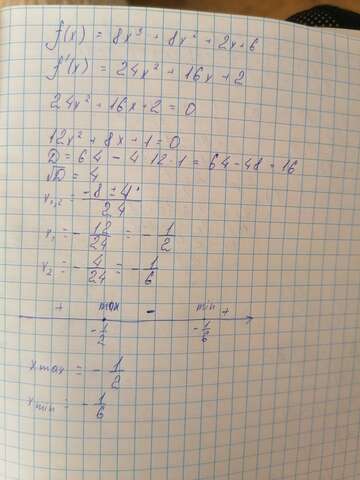 f(x) = 8x³ + 8x² + 2x + 6
f'(x) = 24x² + 16x + 2
24x² + 16x + 2 = 0
12x² + 8x + 1 = 0
D = 64 - 4·12·1 = 64 - 48 = 16
√D = 4
x₁,₂ = (-8 ± 4)/24
x₁ = -12/24 = -1/2
x₂ = -4/24 = -1/6
+ max - min +
-1/2 -1/6
x max = -1/2
x min = -1/6